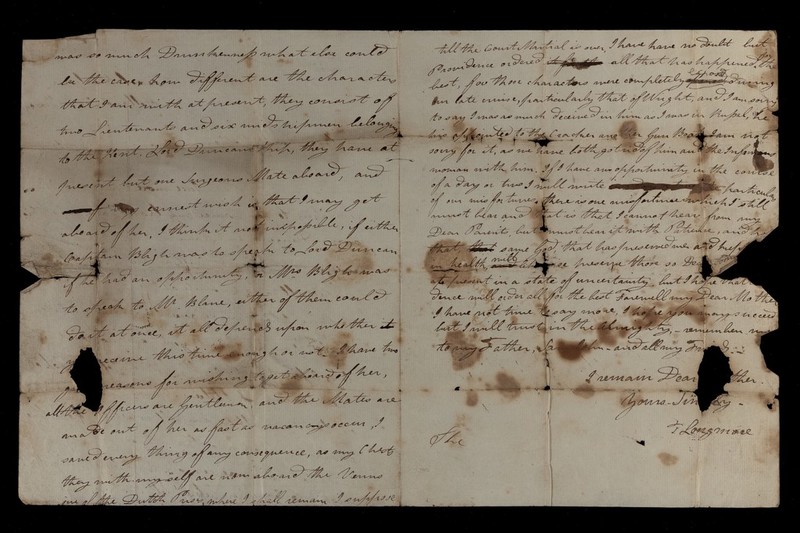 was so much Drunkenness what else could
be the case, how different are the characters
that I am with at present, they consist of
two Lieutenants and six midshipmen belonging
to the Kent, Lord Duncan's ship, they have at
present but one Surgeons Mate aboard, and
earnest wish is that I may get
aboard of her, I think it not impossible, if either
Captain Bligh was to speak to Lord Duncan
if he had an opportunity, or Mrs Bligh was
to speak to Mr Blane, either of them could
do it at once, it all depends upon whether it
this time enough or not. I have two
reasons for wishing to get aboard of her,
all the Officers are Gentlemen, and the Mates are
made out of her as fast as vacancys occur, I
saved every thing of any consequence, as my Chest
they with myself are now aboard the Venus
one of the Dutch Prizes, where I shall remain I suppose
till the Court Martial is over, I have have no doubt but
Providence ordered all that has happened for the
best, for those characters were completely during
our late cruise, particularly that of Wright, and I am sorry
to say I was as much deceived in him as I was in Russel, he
is appointed to the Gun Boat I am not
sorry for it, as we have both got rid of him and the Infamous
woman with him. If I have an opportunity in the course
of a day or two I will write particulars
of our misfortunes, there is one misfortune which I still
must bear and that is that I cannot hear from my
Dear Parents, but I must bear it with Patience, and
that same God, that has preserved me and kept
in health will preserve those so Dear
at present in a state of uncertainty, but I hope that
dence will order all for the best Farewell my Dear Mother
I have not time to say more, I hope you may succeed
but I will trust in the Almighty, - remember me
to my Father, and all my
I remain Dear Mother
Yours Sincerely -
T Longmore
The